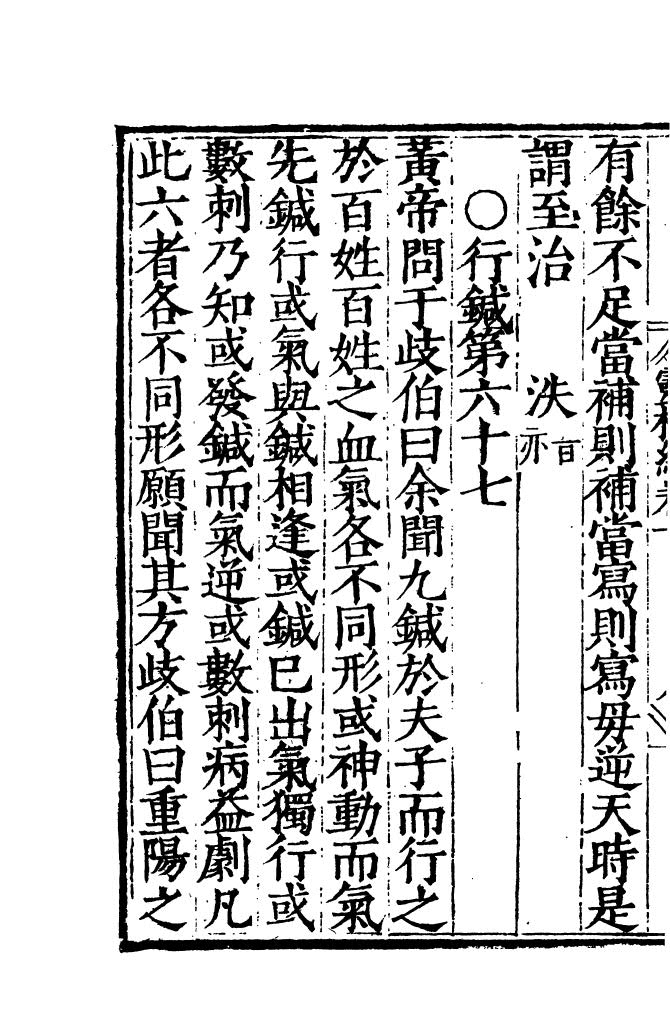 有餘不足當補則補當寫則寫毋逆天時是
謂至治　　泆音亦
○行鍼第六十七
黃帝問于歧伯曰余聞九鍼於夫子而行之
於百姓百姓之血氣各不同形或神動而氣
先鍼行或氣與鍼相逢或鍼巳出氣獨行或
數刺乃知或發鍼而氣逆或數刺病益劇凡
此六者各不同形願聞其方歧伯曰重陽之